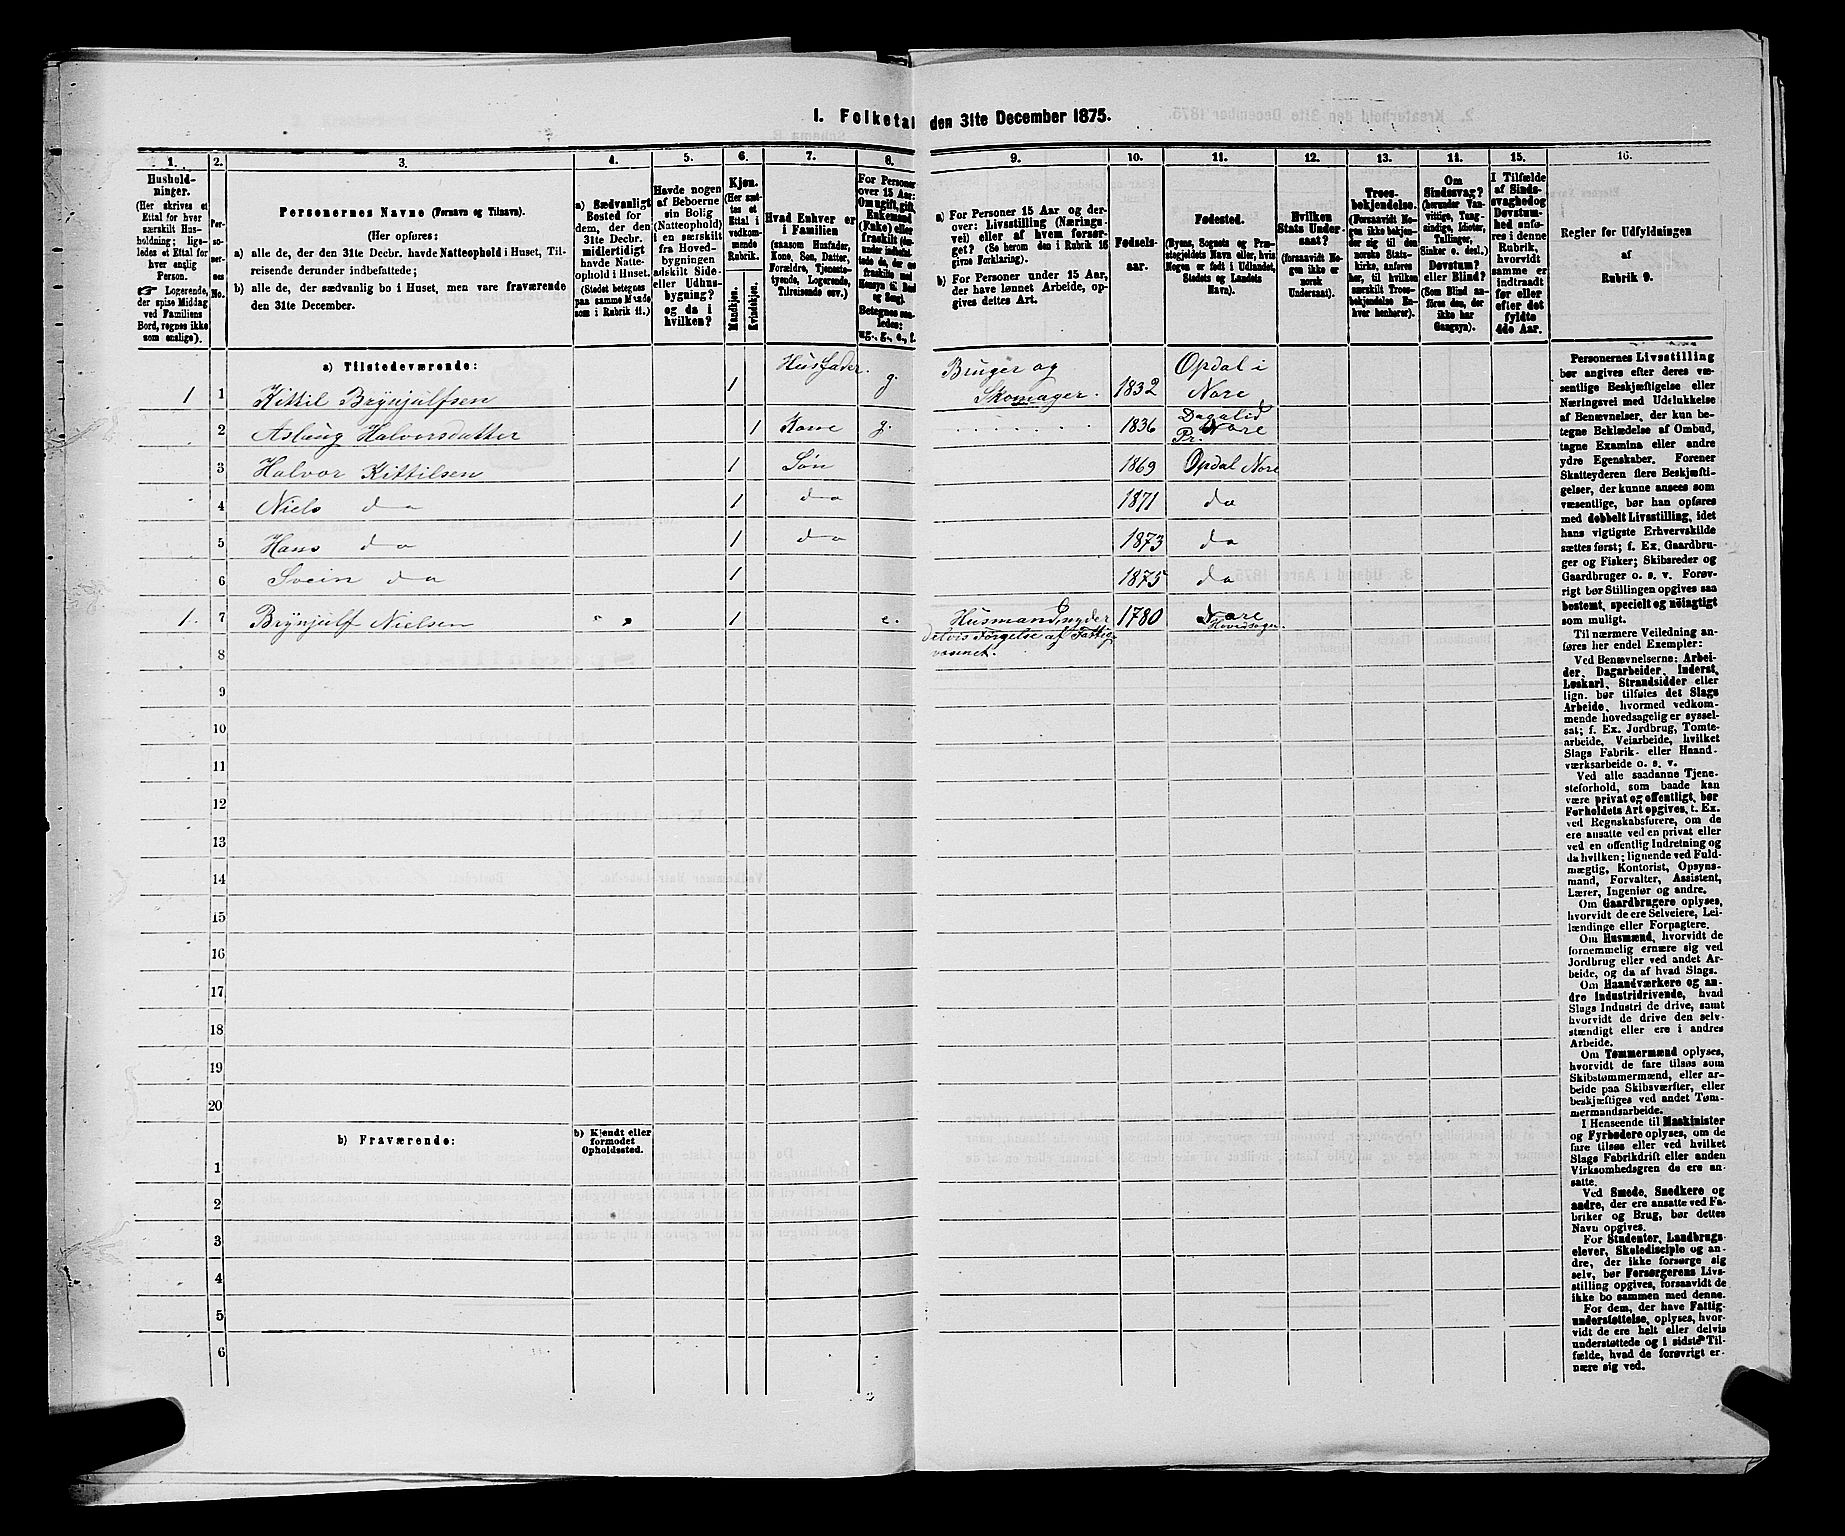 1. Folketal den 31te December 1875.
1. 2. 3. 4. 5. 6. 7. 8. 9. 10. 11. 12. 13. 14. 15. 16.
Hushold-
ninger.
(Her skrives et
Ettal for hver
særskilt Hus-
holdning; lige-
ledes et Ettal for
hver enslig
Person.
☞ Logerende,
der spise Middag
ved Familiens
Bord, regnes ikke
som enslige).
Per-
so-
ner-
nes
No.
Personernes Navne (Fornavn og Tilnavn).
(Her opføres:
a) alle de, der den 31te Decbr. havde Natteophold i Huset, Til-
reisende derunder indbefattede;
b) alle de, der sædvanlig bo i Huset, men vare fraværende
den 31te December.
a) Sædvanligt
Bosted for
dem, der den
31te Decbr.
midlertidigt
havde Natte-
ophold i Huset.
(Stedet betegnes
paa samme Maade
som i Rubrik 11.)
Havde nogen
af Beboerne
sin Bolig
(Natteophold)
i en særskilt
fra Hoved-
bygningen
adskilt Side-
eller Udhus-
bygning?
og da i
hvilken?
Kjøn.
(Her sæt-
tes et
Ettal i
vedkom-
mende
Rubrik.
Mandkjøn.
Kvindekjøn.
Hvad Enhver er
i Familien
(saasom Husfader,
Kone, Søn, Datter,
Forældre, Tjeneste-
tyende, Logerende,
Tilreisende osv.)
For Personer
over 15 Aar:
Om ugift, gift,
Enkemand
(Enke) eller
fraskilt
Betegnes saa-
ledes:
ug., g., e., f.
a) For Personer 15 Aar og der-
over: Livsstilling (Nærings-
vei) eller af hvem forsør-
get? (Se herom den i Rubrik 16
givne Forklaring).
b) For Personer under 15 Aar,
der have lønnet Arbeide, op-
gives dettes Art.
Fødsels-
aar.
Fødested.
(Byens, Sognets og Præ-
stegjeldets Navn eller, hvis
Nogen er født i Udlandet,
Stedets og Landets
Navn).
Hvilken
Stats Under-
saat?
(forsaavidt No-
gen ikke er
norsk
Undersaat).
Troes-
bekjendelse.
(Forsaavidt No-
gen ikke bekjen-
der sig til den
norske Stats-
kirke, anføres
her, til hvilken
særskilt Troes-
bekjendelse En-
hver henhører).
Om
Sindssvag?
(herunder Van-
vittige, Tung-
sindige, Idioter,
Tullinger,
Sinker o. desl.)
Døvstum?
eller Blind?
(Som Blind an-
føres den, der
ikke har
Gangsyn).
I Tilfælde
af Sinds-
svaghed og
Døvstum-
hed anfø-
res i denne
Rubrik,
hvorvidt
samme er
indtraadt
før eller
efter det
fyldte
4de Aar.
Regler for Udfyldningen
af
Rubrik 9.
a) Tilstedeværende:
1 1 Kittil Brynjulfsen 1 Husfader. g. Bruger og Skomager. 1832 Opdal i Nore
2 Aslaug Halvorsdatter 1 Kone g. 1836 Dagalid Nore Pr.
3 Halvor Kittilsen 1 Søn 1869 Opdal Nore
4 Niels do 1 do 1871 do
5 Hans do 1 do 1873 do
6 Svein do 1 1875 do
1. 7 Brynjulf Nielsen 1 e. Husmand, nyder 1780 Nore Hovedsogn.
delvis Forsørgelse af Fattig-
væsenet.
8
9
10
11
12
13
14
15
16
17
18
19
20
b) Fraværende:
b) Kjendt eller
formodet
Opholdssted.
1
2
3
4
5
6
Personernes Livsstilling
bør angives efter deres væ-
sentlige Beskjæftigelse eller
Næringsvei med Udelukkelse
af Benævnelser, der kun be-
tegne Beklædelse af Ombud,
tagne Examina eller andre
ydre Egenskaber. Forener
Skatteyderen flere Beskjæfti-
gelser, der kunne ansees som
væsentlige, bør han opføres
med dobbelt Livsstilling, idet
hans vigtigste Erhvervskilde
sættes først; f. Ex. Gaardbru-
ger og Fisker; Skibsreder og
Gaardbruger o. s. v. Forøv-
rigt bør Stillingen opgives saa
bestemt, specielt og nøiagtigt
som muligt.
Til nærmere Veiledning an-
føres her endel Exempler:
Ved Benævnelserne: Arbei-
der, Dagarbeider, Inderst,
Løskarl, Strandsidder eller
lign. bør tilføies det Slags
Arbeide, hvormed vedkom-
mende hovedsagelig er syssel-
sat; f. Ex. Jordbrug, Tomte-
arbeide, Veiarbeide, hvilket
Slags Fabrik- eller Haand-
værksarbeide o. s. v.
Ved alle saadanne Tjene-
steforhold, som baade kan
være privat og offentligt, bør
Forholdets Art opgives, t. Ex.
ved Regnskabsførere, om de
ere ansatte ved en privat eller
ved en offentlig Indretning og
da hvilken; lignende ved Fuld-
mægtig, Kontorist, Opsyns-
mand, Forvalter, Assistent,
Lærer, Ingeniør og andre.
Om Gaardbrugere oplyses,
hvorvidt de ere Selveiere, Lei-
lændinge eller Forpagtere.
Om Husmænd, hvorvidt de
fornemmelig ernære sig ved
Jordbrug eller ved andet Ar-
beide, og da af hvad Slags.
Om Haandværkere og an-
dre Industridrivende, hvad
Slags Industri de drive, samt
hvorvidt de drive den selv-
stændigt eller ere i andres
Arbeide.
Om Tømmermænd oplyses,
hvorvidt de fare tilsøs som
Skibstømmermænd, eller ar-
beide paa Skibsværfter, eller
beskjæftiges ved andet Tøm-
mermandsarbeide.
I Henseende til Maskinister
og Fyrbødere oplyses, om de
fare tilsøs eller ved hvilket
Slags Fabrikdrift eller anden
Virksomhedsgren de ere an-
satte.
Ved Smede, Snedkere og
andre, der ere ansatte ved Fa-
briker og Brug, bør dettes
Navn opgives.
For Studenter, Landbrugs-
elever, Skoledisciple og an-
dre, der ikke forsørge sig
selv, bør Forsørgerens Livs-
stilling opgives, forsaavidt de
ikke bo sammen med denne.
For dem, der have Fattig-
understøttelse, oplyses, hvor-
vidt de ere helt eller delvis
understøttede og i sidste Til-
fælde, hvad de forøvrigt er-
nære sig ved.